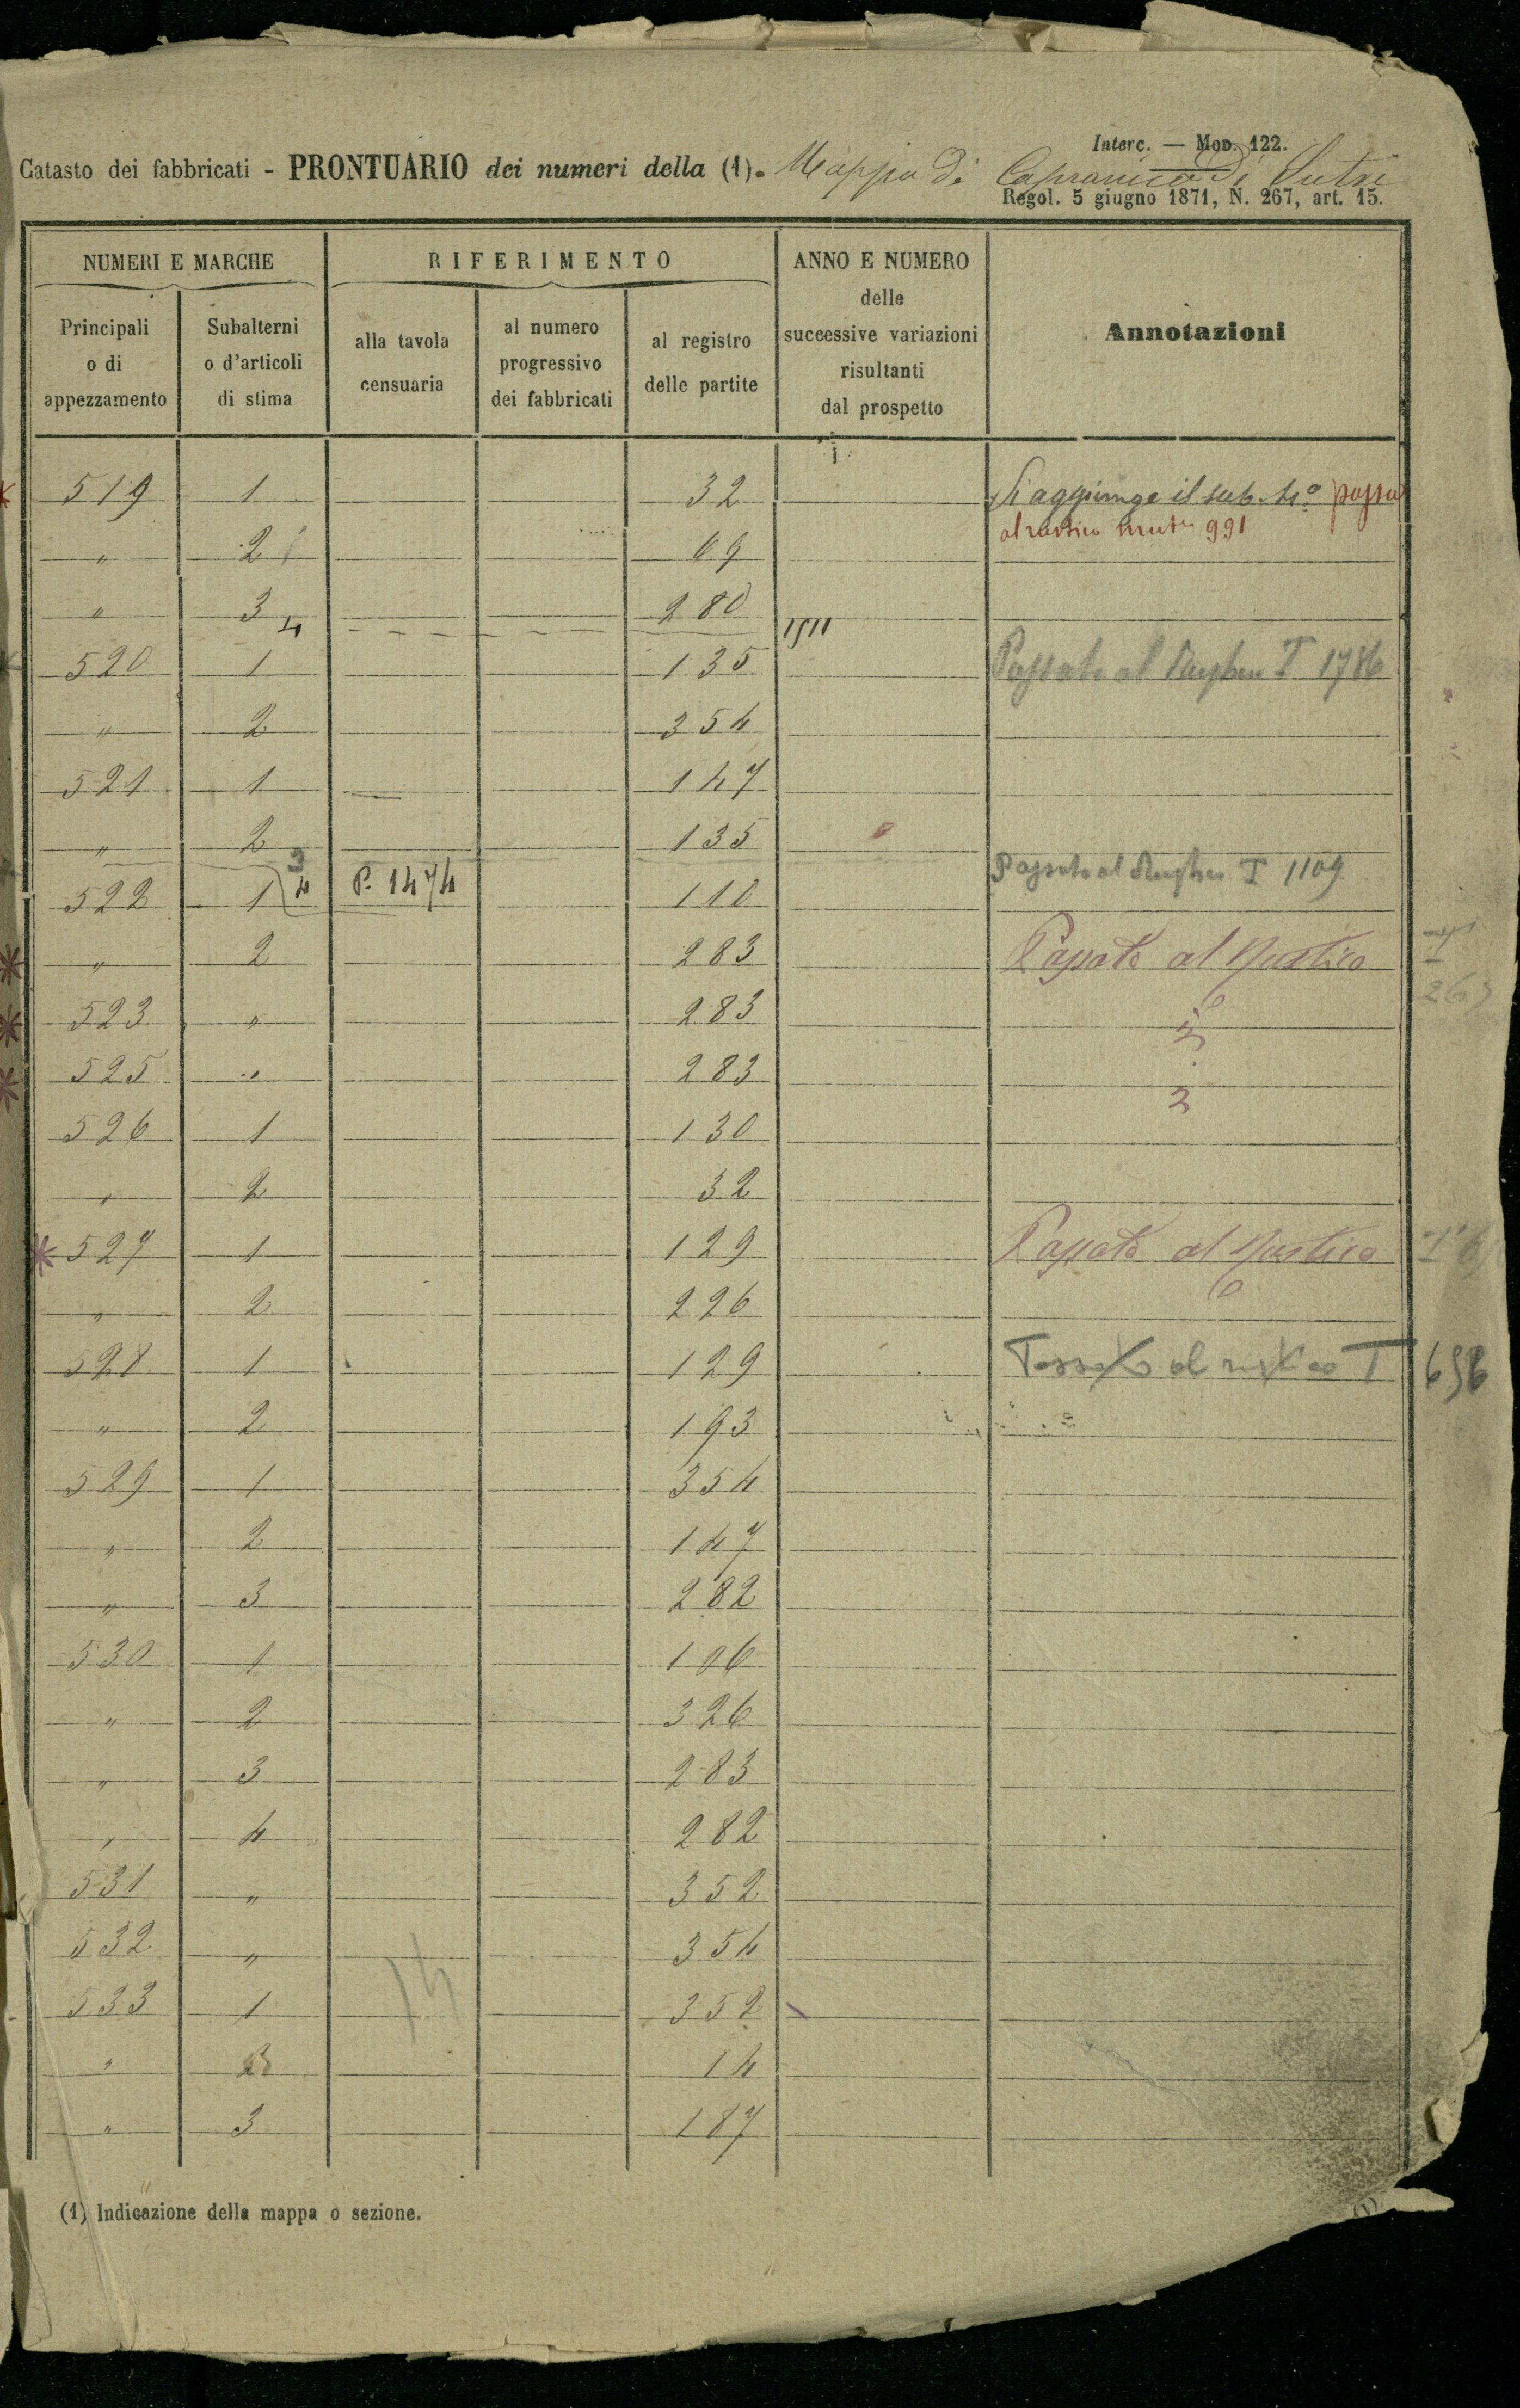 Interc. — Mod. 122.
Catasto dei fabbricati - PRONTUARIO dei numeri della (1). Mappa di Capranica di Sutri
Regol. 5 giugno 1871, N. 267, art. 15.
NUMERI E MARCHE RIFERIMENTO ANNO E NUMERO delle successive variazioni risultanti dal prospetto Annotazioni
Principali o di appezzamento Subalterni o d'articoli di stima alla tavola censuaria al numero progressivo dei fabbricati al registro delle partite
519 1 32 Si aggiunge il sub. 4º passa
al rustico 991
" 2 69
" 3 280
4 1511
520 1 135 Passato al T 1786
" 2 354
521 1 147
" 2 135
3 Passato al T 1109
522 1 4 P. 1474 110
" 2 283 Passato al Rustico T
523 " 283
525 " 283
526 1 130
" 2 32
527 1 129 Passato al Rustico
" 2 226
528 1 129 Passato al rustico T 696
" 2 193
529 1 354
" 2 147
" 3 282
530 1 106
" 2 326
" 3 283
" 4 282
531 " 352
532 " 354
14
533 1 352
" 2 14
" 3 187
(1) Indicazione della mappa o sezione.